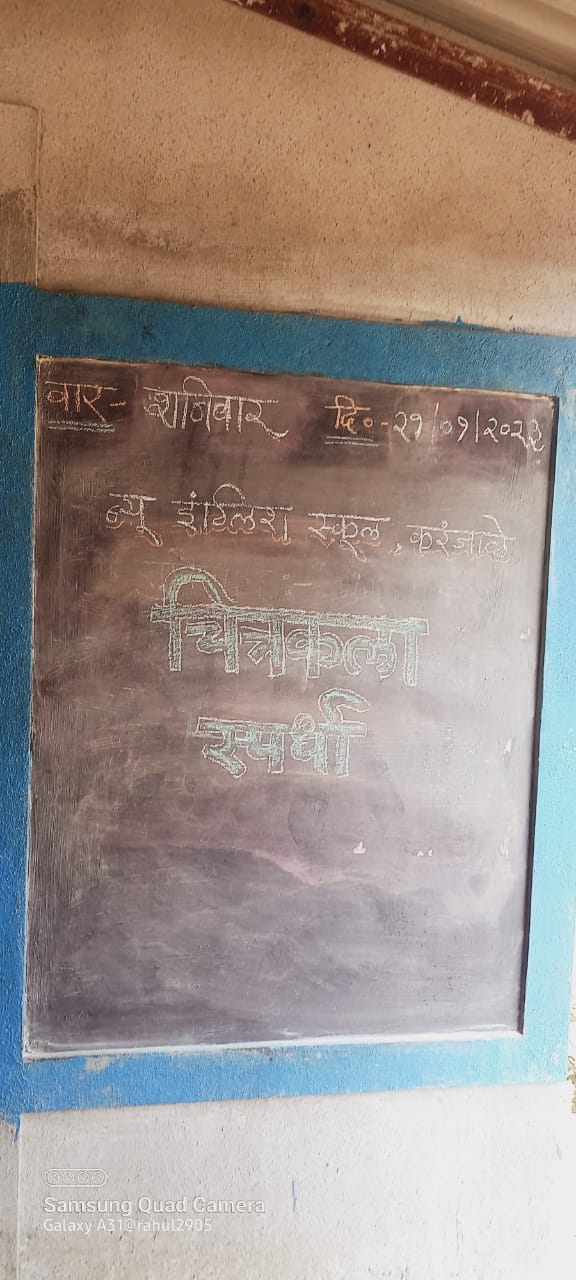 वार- शनिवार दि०-२१/०१/२०२३
न्यू इंग्लिश स्कूल, करंजाळे
चित्रकला
स्पर्धा
Samsung Quad Camera
Galaxy A31@rahul2905